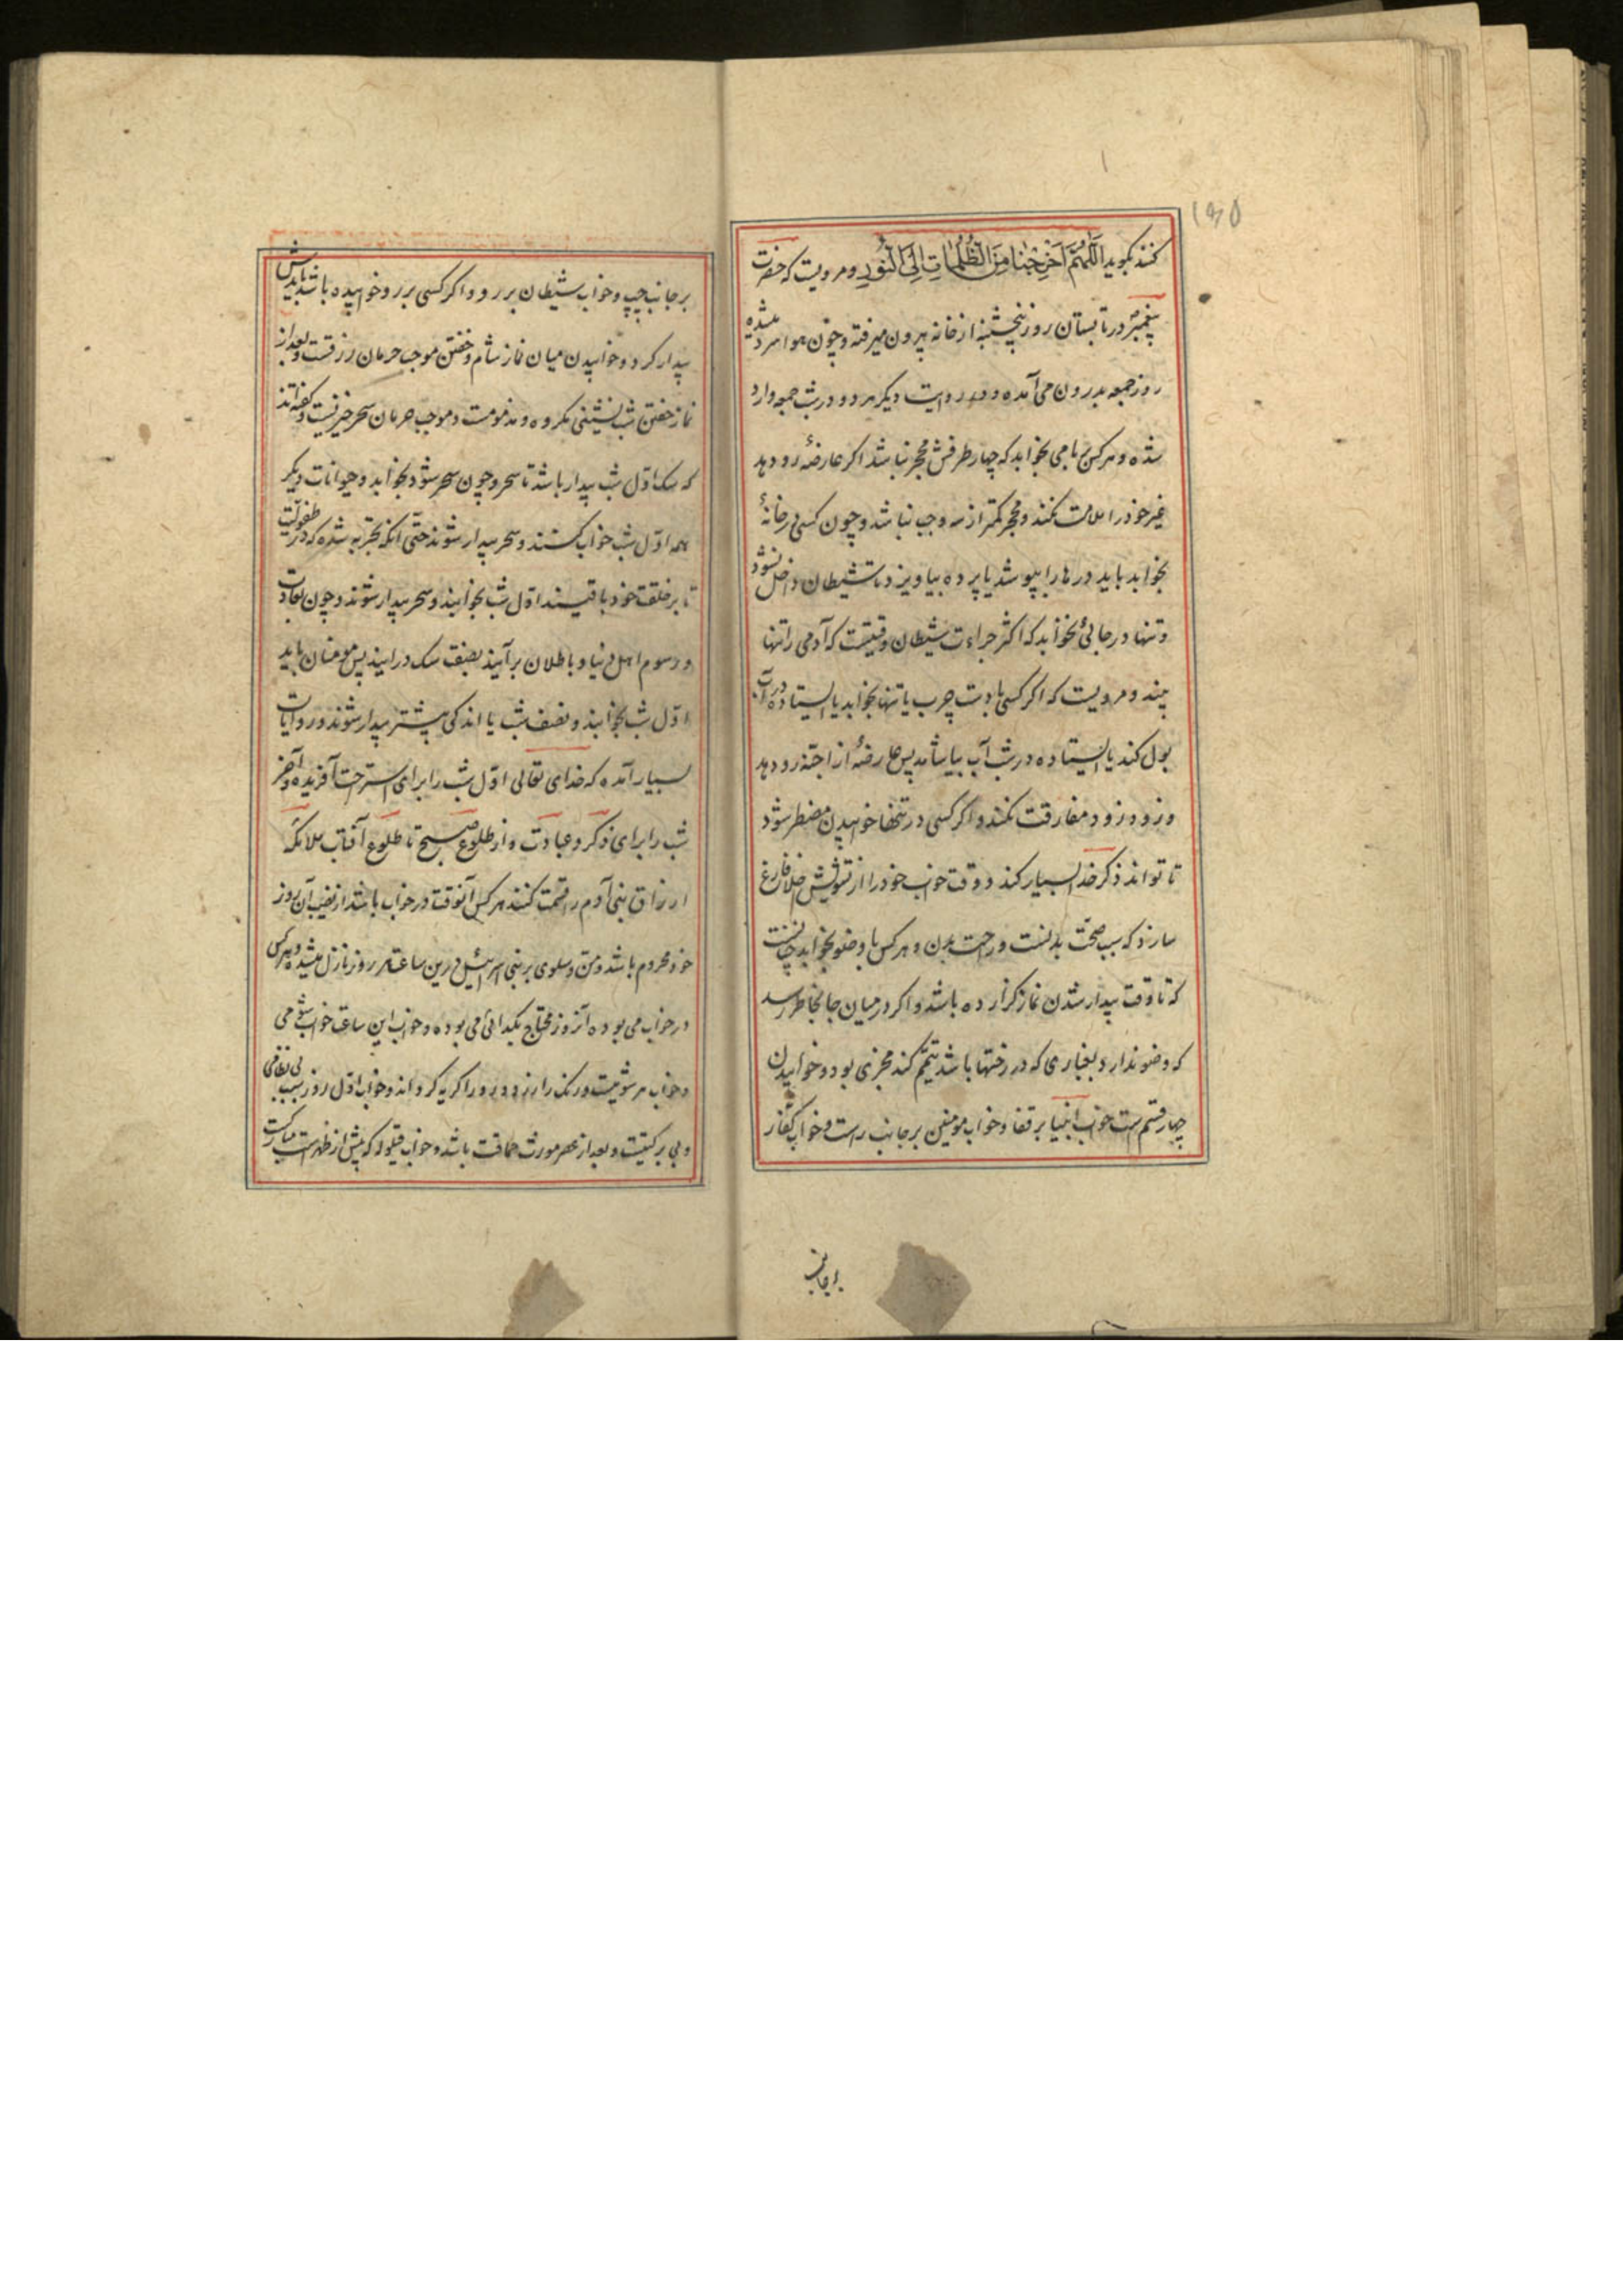 ۱۳۵
کنند بگوید اَللّٰهُمَّ اَخرِجنَا مِنَ الظُّلُمَاتِ اِلَی النُّورِ و مرویست که حضرت
پیغمبر در تابستان روز پنجشنبه از خانه بیرون میرفته و چون هوا سرد میشده
روز جمعه بدرون می آمده و در روایت دیکر هر دو در شب جمعه وارد
شده و هر کس ببامی بخوابد که چهار طرفش محجر نباشد اکر عارضهٔ رو دهد
غیر خود را ملامت نکند و محجر کمتر از سه وجب نباشد و چون کسی در خانهٔ
بخوابد باید درها را بپوشد یا پرده بیاویزد تا شیطان داخل نشود
و تنها در جائی نخوابد که اکثر جراءت شیطان وقتیست که آدمی را تنها
بیند و مرویست که اکر کسی با دست چرب یا تنها بخوابد یا ایستاده در آب
بول کند یا ایستاده در شب آب بیاشامد پس عارضهٔ از اجنه رو دهد
و زود زود مفارقت نکند و اکر کسی در تنها خوابیدن مضطر شود
تا تواند ذکر خدا بسیار کند و وقت خواب خود را از تشویش خلا فارغ
سازد که سبب صحت بدنست و راحت بدن و هر کس با وضو بخوابد چنانست
که تا وقت بیدار شدن نماز کزارده باشد و اکر در میان جا بخاطر رسد
که وضو ندارد بغباری که در رختها باشد تیمّم کند مجزی بود و خوابیدن
چهار قسم است خواب انبیا بر قفا و خواب مومنین بر جانب راست و خواب کفّار
بر جانب
بر جانب چپ و خواب شیطان بر رو و اکر کسی بر رو خوابیده باشد بایدش
بیدار کرد و خوابیدن میان نماز شام و خفتن موجب حرمان رزقست و بعد از
نماز خفتن شب نشینی مکروه و مذمومست و موجب حرمان سحر خیزیست و کفته اند
که سک اوّل شب بیدار باشد تا سحر و چون سحر شود بخوابد و حیوانات دیکر
همه اوّل شب خواب کنند و سحر بیدار شوند حتّی آنکه تجربه شده که در طفولیّت
تا بر خلقت خود باقیند اوّل شب بخوابند و سحر بیدار شوند و چون بعادت
و رسوم اهل دنیا و باطلان برآیند بصنف سک درایند پس مومنان باید
اوّل شب بخوابند و نصف شب یا اندکی پیشتر بیدار شوند و در روایات
بسیار آمده که خدای تعالی اوّل شب را برای استراحت آفریده و آخر
شب را برای ذکر و عبادت و از طلوع صبح تا طلوع آفتاب ملائکه
ارزاق بنی آدم را قسمت کنند هر کس آنوقت در خواب باشد از نصیب آن روز
خود محروم باشد و منّ و سلوی بر بنی اسرائیل درین ساعت هر روز نازل میشده و هر کس
در خواب می بوده آنروز محتاج بکدائی می بوده و خواب این ساعت خواب شومی
و خواب هر شومیست و رنک را زرد و رو را کریه کرداند و خواب اوّل روز سبب بی نظامی
و بی برکتیست و بعد از عصر مورث حماقت باشد و خواب قیلوله که پیش از ظهر است مبارکست